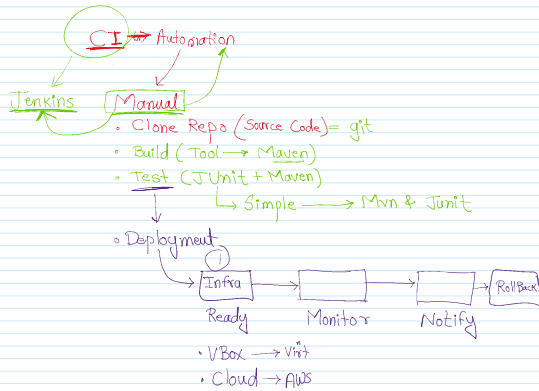 CI → Automation
Jenkins
Manual
• Clone Repo (Source Code) = git
• Build (Tool → Maven)
• Test (JUnit + Maven)
→ Simple → Mvn & Junit
• Deployment
1
Infra
RollBack
Ready
Monitor
Notify
• VBox → Virt
• Cloud → AWS